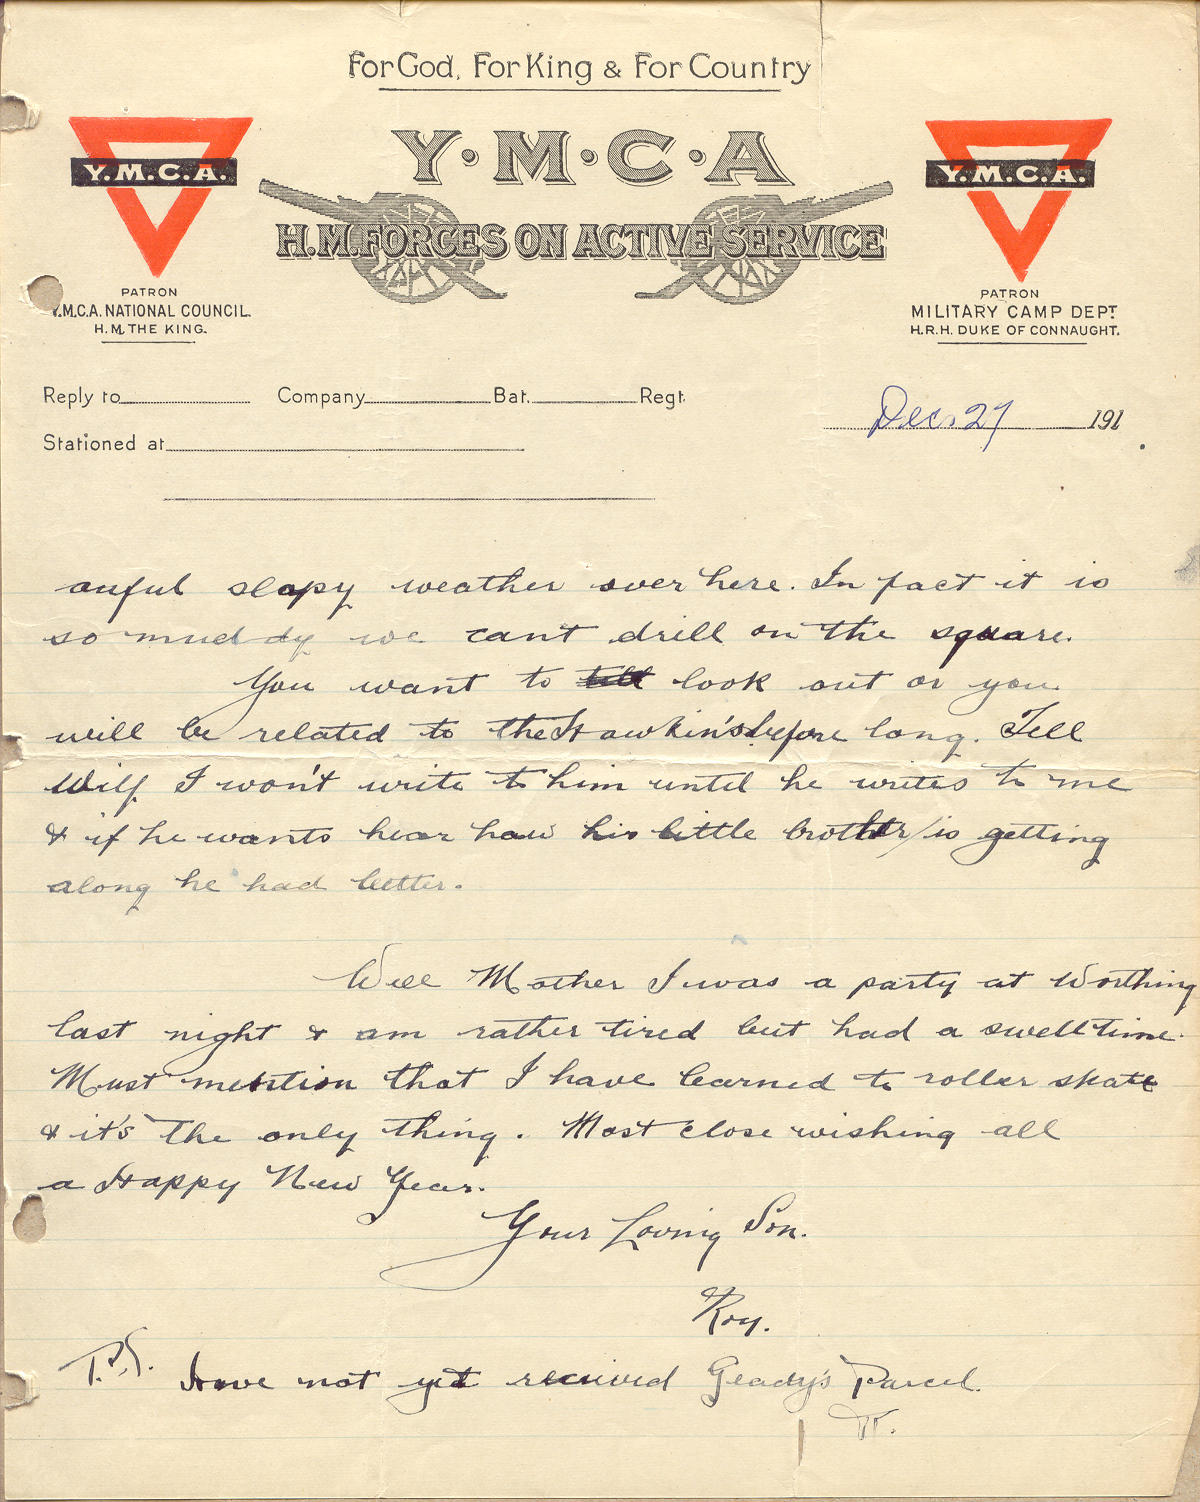 For God, For King & For Country
Y·M·C·A
Y.M.C.A.
Y.M.C.A.
H.M. FORCES ON ACTIVE SERVICE
PATRON
Y.M.C.A. NATIONAL COUNCIL.
H.M. THE KING.
PATRON
MILITARY CAMP DEPT
H.R.H. DUKE OF CONNAUGHT.
Reply to Company Bat. Regt.
Dec. 27 191
Stationed at
awful slopy weather over here. In fact it is
so muddy we cant drill on the square.
You want to tell look out or you
will be related to the Hawkin's before long. Tell
Wilf I won't write to him until he writes to me
& if he wants hear how his little brother is getting
along he had better.
Well Mother I was a party at Worthing
last night & am rather tired but had a swell time.
Must mention that I have learned to roller skate
& it's the only thing. Must close wishing all
a Happy New Year.
Your Loving Son.
Roy.
P.S. Have not yet received Gladys Parcel.